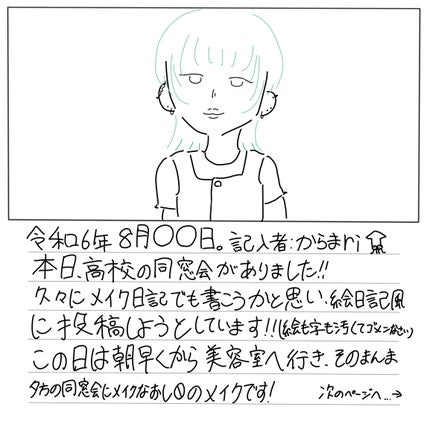 令和6年8月〇〇日。記入者:からまri
本日、高校の同窓会がありました!!
久々にメイク日記でも書こうかと思い、絵日記風
に投稿しようとしています!!(絵も字も汚くてゴメンなさい)
この日は朝早くから美容室へ行き、そのまんま
夕方の同窓会にメイクなおし①のメイクです! 次のページへ...→